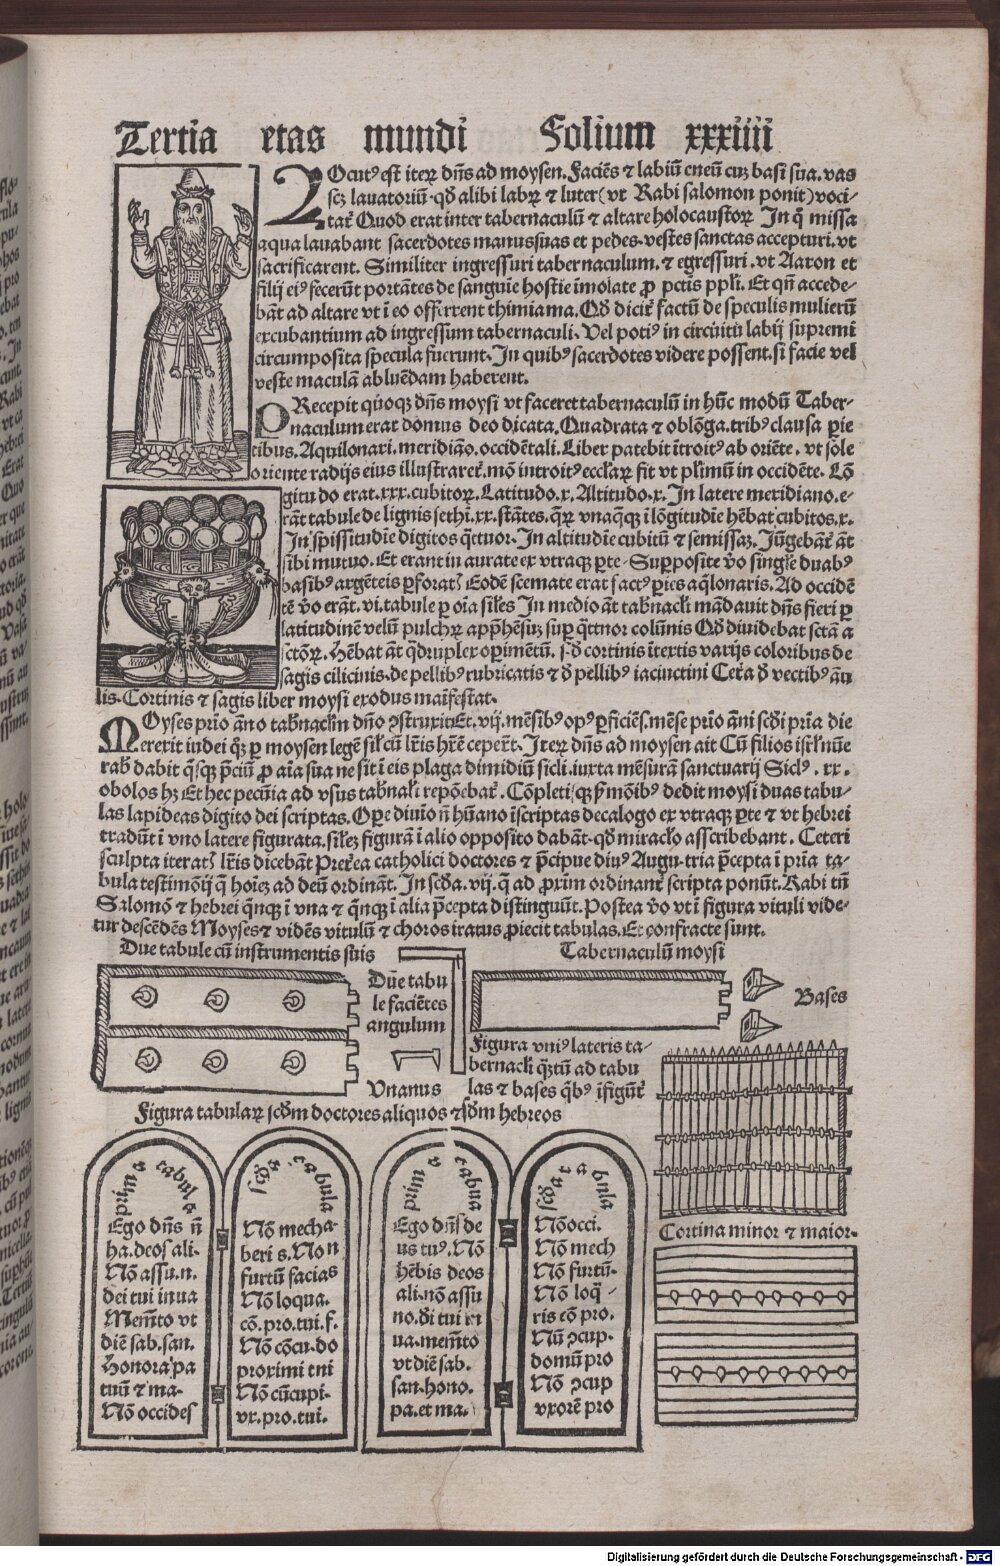 Tertia etas mundi Folium xxxiiii
LOcutꝰ est iterꝝ dñs ad moysen. Faciẽs ⁊ labiũ eneũ cuꝫ basi sua. vas
scꝫ lauatoriũ. qđ alibi labꝝ ⁊ luter (vt Rabi salomon ponit) voci-
tat᷑ Quod erat inter tabernaculũ ⁊ altare holocaustoꝝ In q̃ missa
aqua lauabant sacerdotes manus suas et pedes. vestes sanctas accepturi. vt
sacrificarent. Similiter ingressuri tabernaculum. ⁊ egressuri. vt Aaron et
filij eiꝰ fecerũt portãtes de sanguĩe hostie ĩmolate ꝓ pctĩs ppl̃i. Et qñ accede-
bãt ad altare vt ĩ eo offerrent thimiama. Qđ dicit᷑ factũ de speculis mulierũ
excubantium ad ingressum tabernaculi. Vel potiꝰ in circũitũ labij supremi
circumposita specula fuerunt. In quibꝰ sacerdotes videre possent. si facie vel
veste maculã abluẽdam haberent.
PRecepit quoqꝫ dñs moysi vt faceret tabernaculũ in hũc modũ Taber-
naculum erat domus deo dicata. Quadrata ⁊ oblõga. tribꝰ clausa ꝑie
tibus. Aquilonari. meridião. occidẽtali. Liber patebit ĩtroitꝰ ab oriẽte. vt sole
oriente radijs eius illustraret᷑. mõ introitꝰ ecclaꝝ fit vt pl̃imũ in occidẽte. Lõ
gitudo erat. xxx. cubitoꝝ. Latitudo. x. Altitudo. x. In latere meridiano. e-
rãt tabule de lignis sethĩ. xx. stãtes. q̃ꝝ vnaq̃qꝫ ĩ lõgitudĩe hẽbat cubitos. x.
In spissitudĩe digitos q̃ttuor. In altitudĩe cubitũ ⁊ semissaꝫ. Jũgebãt᷑ ãt
sibi mutuo. Et erant in aurate ex vtraqꝫ ꝑte. Supposite v̊o singl̃e duabꝰ
basibꝰ argẽteis ꝑforatꝭ Eodẽ scemate erat factꝰ ꝑies aq̃lonaris. Ad occidẽ
tẽ v̊o erãt. vi. tabule ꝑ oĩa sil̃es In medio ãt tab̃nacl̃i mãdauit dñs fieri ꝑ
latitudinẽ velũ pulchꝝ app̃hẽsuꝫ suꝑ q̃ttuor colũnis Qđ diuidebat sctã a
sctõꝝ. Hẽbat ãt q̃druplex oꝑimẽtũ. s. đ cortinis ĩtextis varijs coloribus de
sagis cilicinis. de pellibꝰ rubricatis ⁊ đ pellibꝰ iacinctini Cet᷑a đ vectibꝰ ãu
lis. Cortinis ⁊ sagis liber moysi exodus maĩfestat.
MOyses prĩo ãno tab̃naclm̃ dño ꝯstruxit. Et. vij. mẽsibꝰ opꝰ ꝑficiẽs. mẽse prĩo ãni scđi prĩa die
erexit iudei q̃ꝫ ꝑ moysen legẽ sil̃ cũ l̃ris hr̃ẽ ceper̃t. Iterꝝ dñs ad moysen ait Cũ filios isrl̃ nũe
rab̃ dabit q̃sqꝫ p̃ciũ ꝓ aĩa sua ne sit ĩ eis plaga dimidiũ sicli. iuxta mẽsurã sanctuarij Siclꝰ. xx.
obolos hꝫ Et hec pecũia ad vsus tab̃nacl̃i repõebat᷑. Cõpletiꝫ qꝫ p̃mõibꝰ dedit moysi duas tabu-
las lapideas digito dei scriptas. Oꝑe diuĩo ñ hũano ĩscriptas decalogo ex vtraqꝫ ꝑte ⁊ vt hebrei
tradũt ĩ vno latere figurata. sil̃eꝫ figurã ĩ alio opposito dabãt. qđ miracl̃o asscribebant. Ceteri
sculpta iteratꝭ l̃ris dicebãt Pret᷑ea catholici doctores ⁊ p̃cipue diuꝰ Augu. tria p̃cepta ĩ prĩa ta-
bula testimõij q̃ hoĩeꝫ ad deũ ordinãt. In scđa. vij. q̃ ad ꝓxim̃ ordinant᷑ scripta ponũt. Rabi tñ
Salomõ ⁊ hebrei q̃nqꝫ ĩ vna ⁊ q̃nqꝫ ĩ alia p̃cepta distinguũt. Postea v̊o vt ĩ figura vituli vide-
tur descẽdẽs Moyses ⁊ vidẽs vitulũ ⁊ choros iratus ꝓiecit tabulas. Et confracte sunt.
Due tabule cũ instrumentis suis
Tabernaculũ moysi
Dũe tabu
le faciẽtes
angulum
Vnanus
Bases
Figura vniꝰ lateris ta-
bernacl̃i q̃ꝫtũ ad tabu
las ⁊ bases q̃bꝰ ĩfigũt᷑
Figura tabulaꝝ scđm doctores aliquos ⁊ scđm hebreos
prima tabula
Ego dñs ñ
ha. deos ali.
Nõ assu. n.
dei tui in ua
Memẽto vt
diẽ sab. san.
Honora pa
tuũ ⁊ ma.
Nõ occides
scđa tabula
Nõ mecha
beri s. Non
furtũ facias
Nõ loqua.
cõ. pro. tui. f.
Nõ cõcu. do
proximi tui
Nõ cũcupi.
vx. pro. tui.
prima tabua
Ego dñs de
us tuꝰ. Nõ
hẽbis deos
ali. nõ assu
no. di tui in
ua. memẽto
vt diẽ sab.
san. hono.
pa. et ma.
scđa tabula
Nõ occi.
Nõ mech
Nõ furtũ.
Nõ loq̃-
ris cõ pro.
Nũ ꝯcup.
domũ pro
Nõ ꝯcup
vxorẽ pro
Cortina minor ⁊ maior.
Digitalisierung gefördert durch die Deutsche Forschungsgemeinschaft - DFG